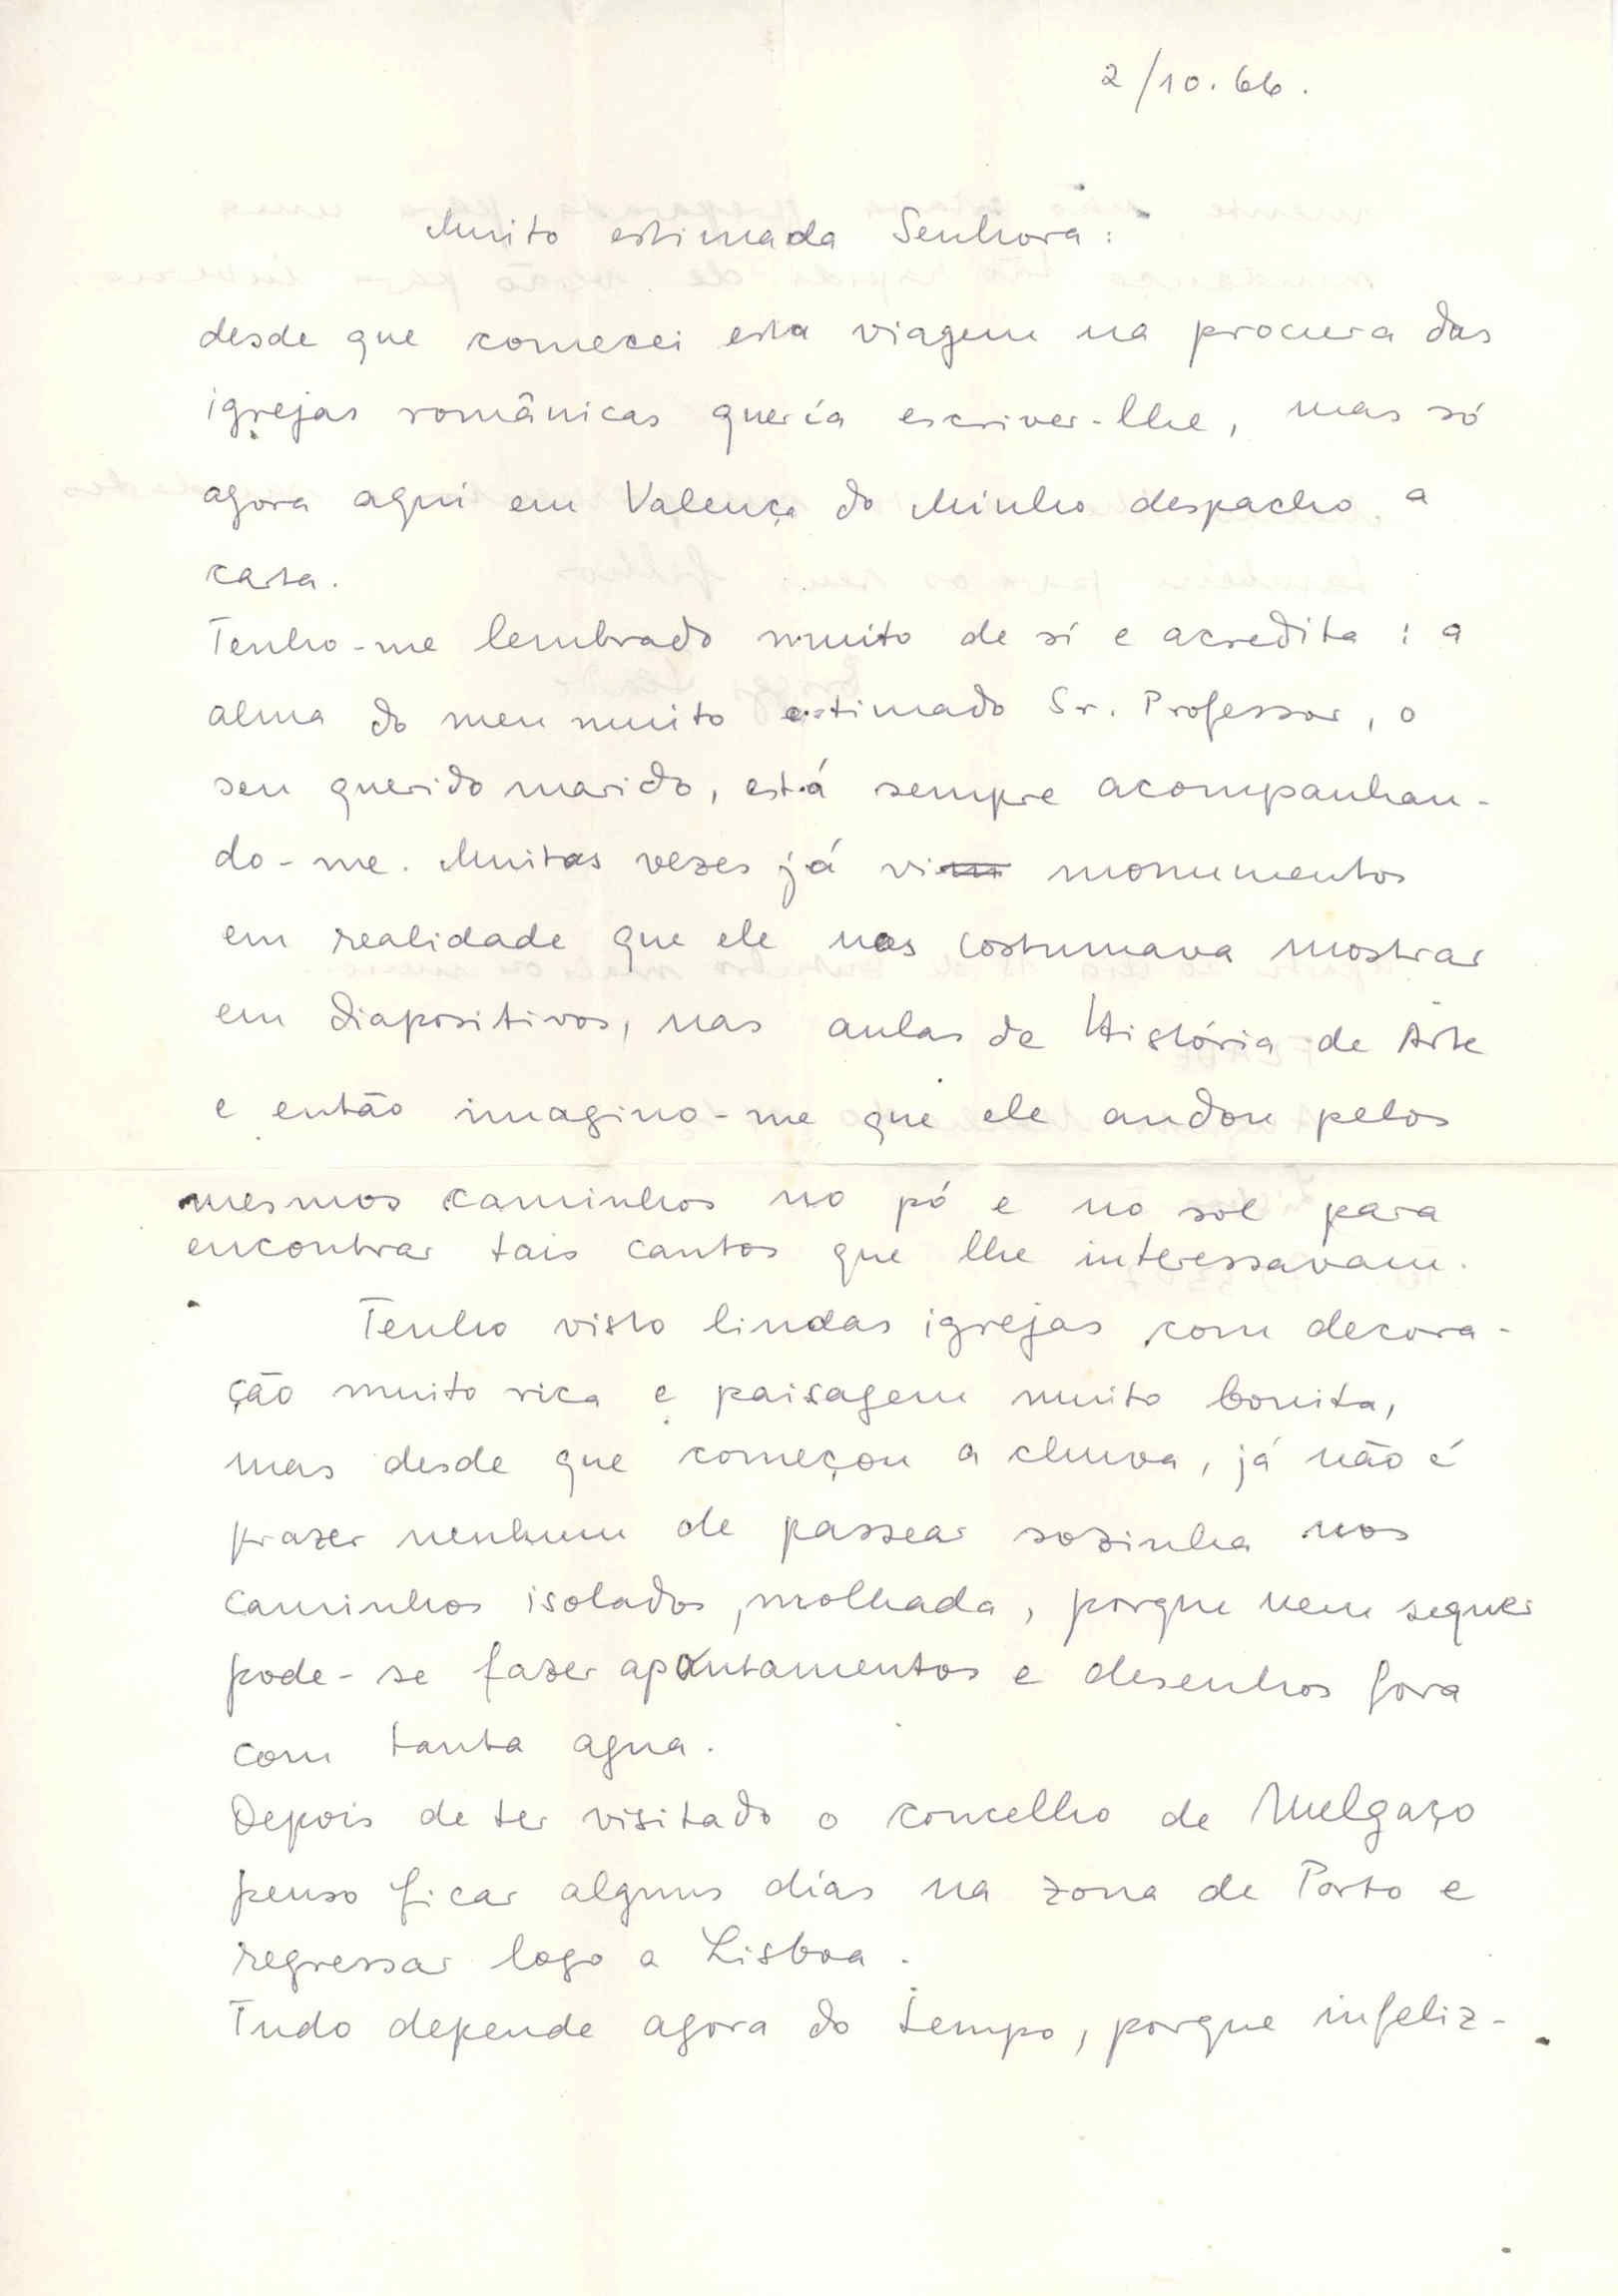 2/10.66.
Muito estimada Senhora:
desde que comecei esta viagem na procura das
igrejas românicas quería escriver-lhe, mas só
agora aqui em Valença do Minho despacho a
carta.
Tenho-me lembrado muito de sí e acredita: a
alma do meu muito estimado Sr. Professor, o
seu querido marido, está sempre acompanhan-
do-me. Muitas vezes já vi monumentos
em realidade que ele nos costumava mostrar
em diapositivos, nas aulas de História de Arte
e então imagino-me que ele andou pelos
mesmos caminhos no pó e no sol para
encontrar tais cantos que lhe interessavam.
Tenho visto lindas igrejas com decora-
ção muito rica e paisagem muito bonita,
mas desde que começou a chuva, já não é
prazer nenhum de passear sozinha nos
caminhos isolados, molhada, porque nem sequer
pode-se fazer apontamentos e desenhos fora
com tanta agua.
Depois de ter visitado o concelho de Melgaço
penso ficar alguns días na zona de Porto e
regressar logo a Lisboa.
Tudo depende agora do tempo, porque infeliz-